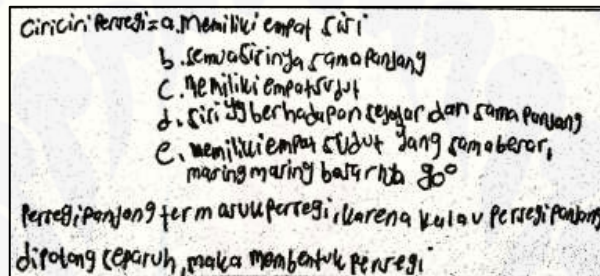 Ciri ciri Persegi = a. Memiliki empat sisi
b. semua sisinya sama panjang
c. Memiliki empat sudut
d. sisi yg berhadapan sejajar dan sama panjang
e. memiliki empat sudut yang sama besar,
masing masing besarnya 90°
Persegi panjang termasuk persegi, karena kalau persegi panjang
dipotong separuh, maka membentuk persegi